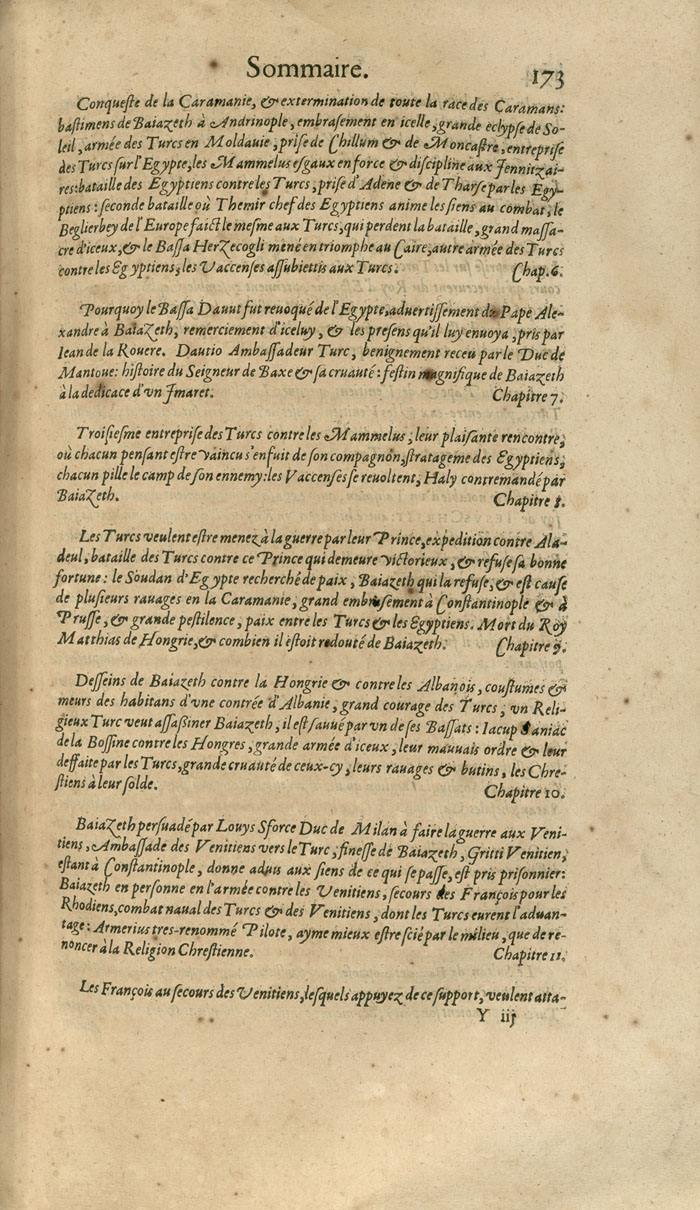 Sommaire. 173
Conqueste de la Caramanie, & extermination de toute la race des Caramans:
bastimens de Baiazeth à Andrinople, embrasement en icelle, grande eclypse de So-
leil, armée des Turcs en Moldauie, prise de Chillum & de Moncastre, entreprise
des Turcs sur l'Egypte, les Mammelus esgaux en force & discipline aux Jennitzai-
res: bataille des Egyptiens contre les Turcs, prise d'Adene & de Tharse par les Egy-
ptiens: seconde bataille où Themir chef des Egyptiens anime les siens au combat, le
Beglierbey de l'Europe faict le mesme aux Turcs, qui perdent la bataille, grand massa-
cre d'iceux, & le Bassa Herzecogli mené en triomphe au Caire, autre armée des Turcs
contre les Egyptiens, les Vaccenses assubiettis aux Turcs. Chap. 6.
Pourquoy le Bassa Dauut fut reuoqué de l'Egypte, aduertissement du Pape Ale-
xandre à Baiazeth, remerciement d'iceluy, & les presens qu'il luy enuoya, pris par
Iean de la Rouere. Dautio Ambassadeur Turc, benignement receu par le Duc de
Mantoue: histoire du Seigneur de Baxe & sa cruauté: festin magnifique de Baiazeth
à la dedicace d'vn Jmaret. Chapitre 7.
Troisiesme entreprise des Turcs contre les Mammelus, leur plaisante rencontre,
où chacun pensant estre vaincu s'enfuit de son compagnon, stratageme des Egyptiens,
chacun pille le camp de son ennemy: les Vaccenses se reuoltent, Haly contremandé par
Baiazeth. Chapitre 8.
Les Turcs veulent estre menez à la guerre par leur Prince, expedition contre Ala-
deul, bataille des Turcs contre ce Prince qui demeure victorieux, & refuse sa bonne
fortune: le Soudan d'Egypte recherché de paix, Baiazeth qui la refuse, & est cause
de plusieurs rauages en la Caramanie, grand embrasement à Constantinople & à
Prusse, & grande pestilence, paix entre les Turcs & les Egyptiens. Mort du Roy
Matthias de Hongrie, & combien il estoit redouté de Baiazeth. Chapitre 9.
Desseins de Baiazeth contre la Hongrie & contre les Albanois, coustumes &
meurs des habitans d'vne contrée d'Albanie, grand courage des Turcs, vn Reli-
gieux Turc veut assassiner Baiazeth, il est sauué par vn de ses Bassats: Iacup Saniac
de la Bossine contre les Hongres, grande armée d'iceux, leur mauuais ordre & leur
deffaite par les Turcs, grande cruauté de ceux-cy, leurs rauages & butins, les Chre-
stiens à leur solde. Chapitre 10.
Baiazeth persuadé par Louys Sforce Duc de Milan à faire la guerre aux Veni-
tiens, Ambassade des Venitiens vers le Turc, finesse de Baiazeth, Gritti Venitien,
estant à Constantinople, donne aduis aux siens de ce qui se passe, est pris prisonnier:
Baiazeth en personne en l'armée contre les Venitiens, secours des François pour les
Rhodiens, combat naual des Turcs & des Venitiens, dont les Turcs eurent l'aduan-
tage: Armerius tres-renommé Pilote, ayme mieux estre scié par le milieu, que de re-
noncer à la Religion Chrestienne. Chapitre 11.
Les François au secours des Venitiens, lesquels appuyez de ce support, veulent atta-
Y iij